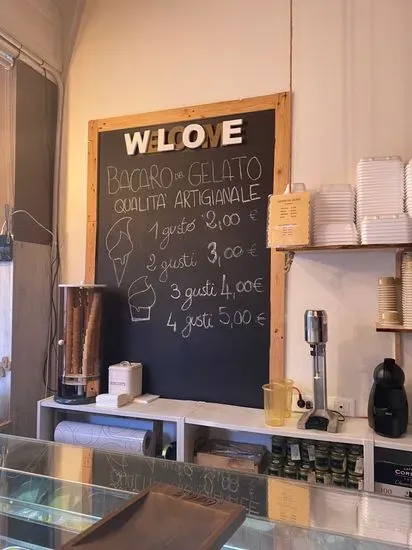 WELCOME
BACARO DEL GELATO
QUALITA' ARTIGIANALE
1 gusto 2,00 €
2 gusti 3,00 €
3 gusti 4,00 €
4 gusti 5,00 €